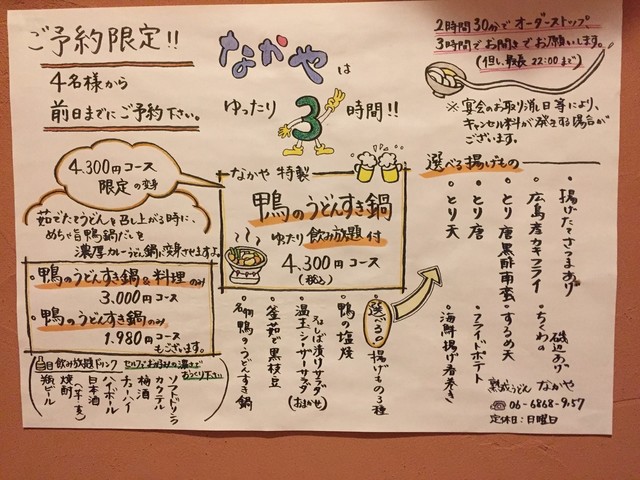 ご予約限定!!
4名様から
前日までにご予約下さい。
なかやは
ゆったり3時間!!
2時間30分でオーダーストップ
3時間でお開きでお願いします。
(但し、最長22:00まで)
※宴会のお取り消し日等により、
キャンセル料が発生する場合が
ございます。
4.300円コース
限定の変身
茹でたてうどんを召し上がる時に、
めちゃ旨鴨鍋だしを
濃厚カレーうどん鍋に変身させますよ。
・鴨のうどんすき鍋&料理のみ
3.000円コース
・鴨のうどんすき鍋のみ
1.980円コース
もございます。
なかや特製
鴨のうどんすき鍋
ゆったり飲み放題付
4.300円コース
(税込)
選べる揚げもの
・揚げたてさつまあげ
・広島産カキフライ
・ちくわの磯辺あげ
・とり唐黒酢南蛮
・するめ天
・とり唐
・フライドポテト
・とり天
・海鮮揚げ春巻き
・選べる揚げもの3種
・鴨の塩焼
・温玉シーザーサラダ
(おまかせ)
・釜茹で黒枝豆
・名物鴨のうどんすき鍋
当日飲み放題ドリンク
ソフトドリンク
カクテル
梅酒
チューハイ
ハイボール
日本酒
焼酎(芋・麦)
瓶ビール
熟成うどんなかや
06-6868-9157
定休日:日曜日